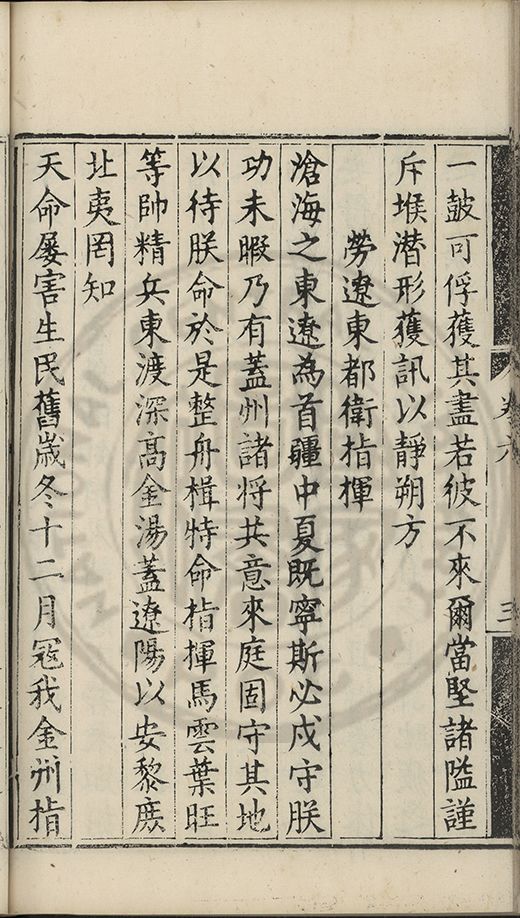 一皷可俘獲其盡若彼不來爾當堅諸隘謹
斥堠潛形獲訊以靜朔方
勞遼東都衛指揮
滄海之東遼為首疆中夏既寧斯必戍守朕
功未暇乃有蓋州諸将共意來庭固守其地
以待朕命於是整舟楫特命指揮馬雲葉旺
等帥精兵東渡深高金湯蓋遼陽以安黎庻
北夷罔知
天命屢害生民舊歲冬十二月冦我金州指
卷六
三